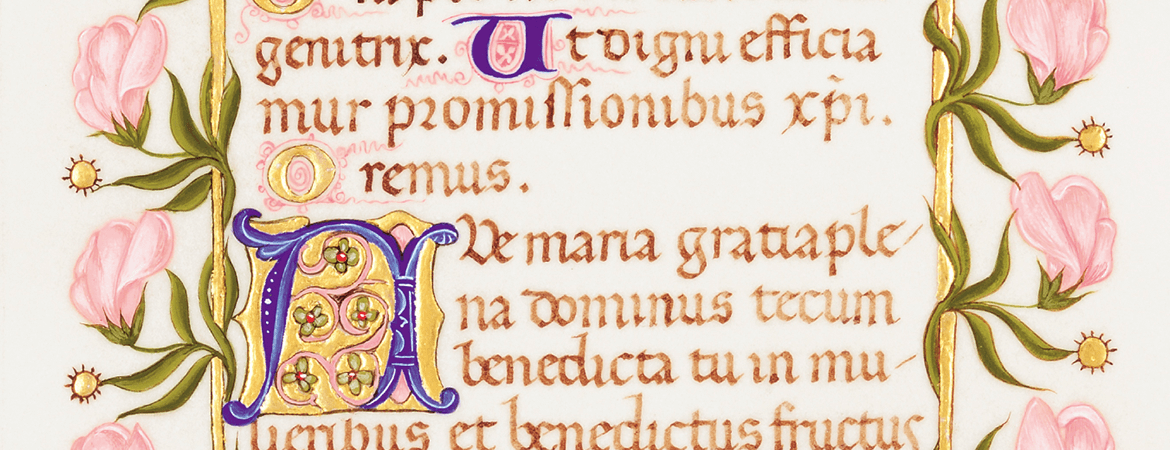 genitrix. Ut digni efficia
mur promiſſionibus xp̄i.
Oremus.
AVe maria gratia ple-
na dominus tecum
benedicta tu in mu-
lieribus et benedictus fructus